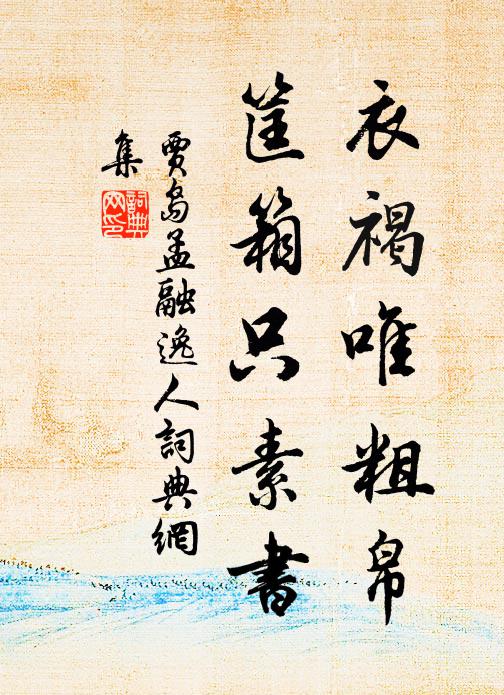 衣褐唯粗帛
筐箱只素書
賈島孟融逸人詞典網
集
詞典
网印